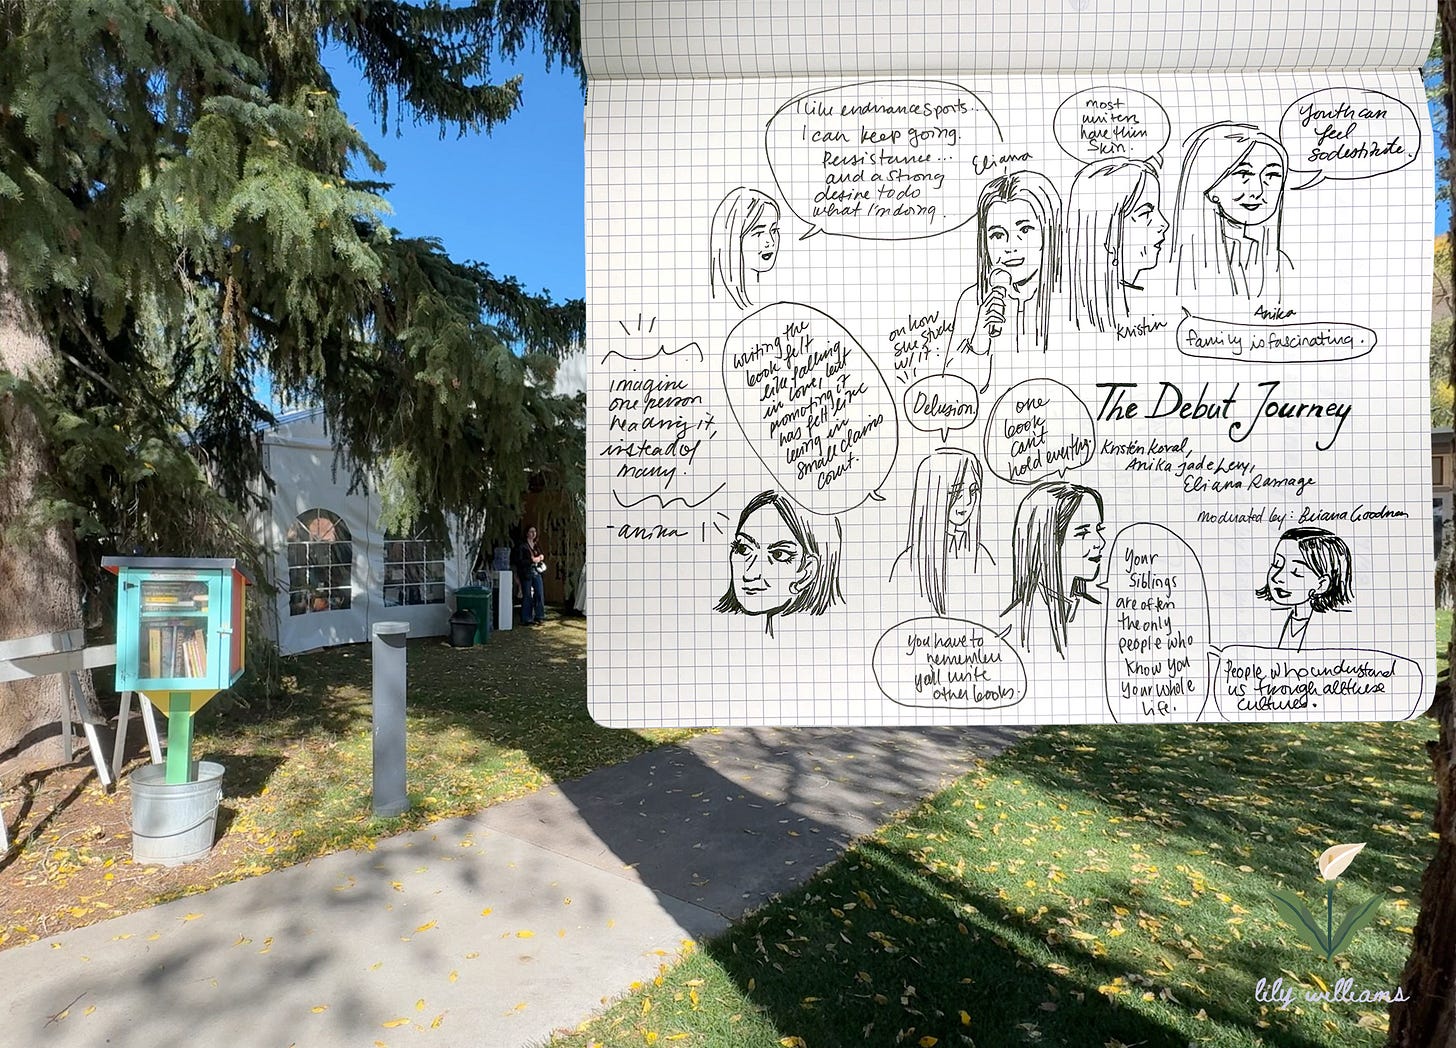 I like endurance sports...
I can keep going.
Persistance...
and a strong
desire to do
what I'm doing.
Eliana
most
writers
have thin
skin.
Youth can
feel
so destitute.
Kristin
Anika
Family is fascinating.
imagine
one person
reading it,
instead of
many.
- anika
writing the
book felt
like falling
in love, but
promoting it
has felt like
being in
small claims
court.
on how
she stuck
w/ it:
Delusion.
one
book
can't
hold everything.
The Debut Journey
Kristin Koval,
Anika Jade Levy,
Eliana Ramage
moderated by: Briana Goodman
You have to
remember
y'all write
other books.
Your
Siblings
are often
the only
people who
know you
your whole
life.
People who understand
us through all these
cultures.
lily williams